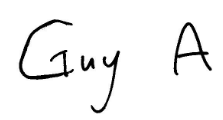 Guy A